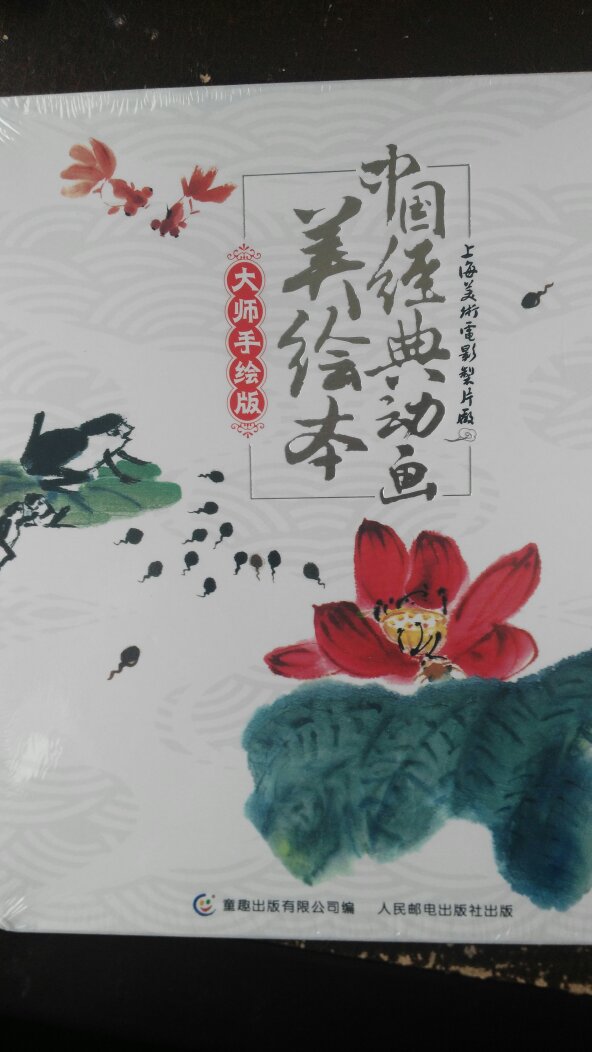 中国经典动画
美绘本
上海美術電影製片廠
大师手绘版
童趣出版有限公司编 人民邮电出版社出版